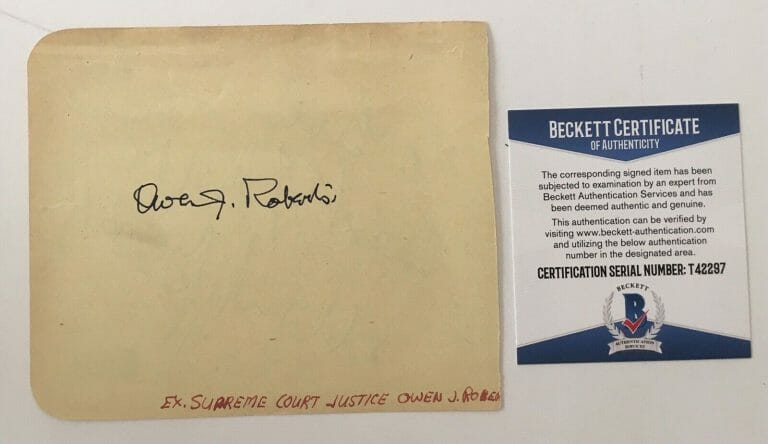 Owen J. Roberts
EX. SUPREME COURT JUSTICE OWEN J. ROBER
BECKETT CERTIFICATE
OF AUTHENTICITY
The corresponding signed item has been
subjected to examination by an expert from
Beckett Authentication Services and has
been deemed authentic and genuine.
This authentication can be verified by
visiting www.beckett-authentication.com
and utilizing the below authentication
number in the designated area.
CERTIFICATION SERIAL NUMBER: T42297
BECKETT
B
AUTHENTICATION
SERVICES